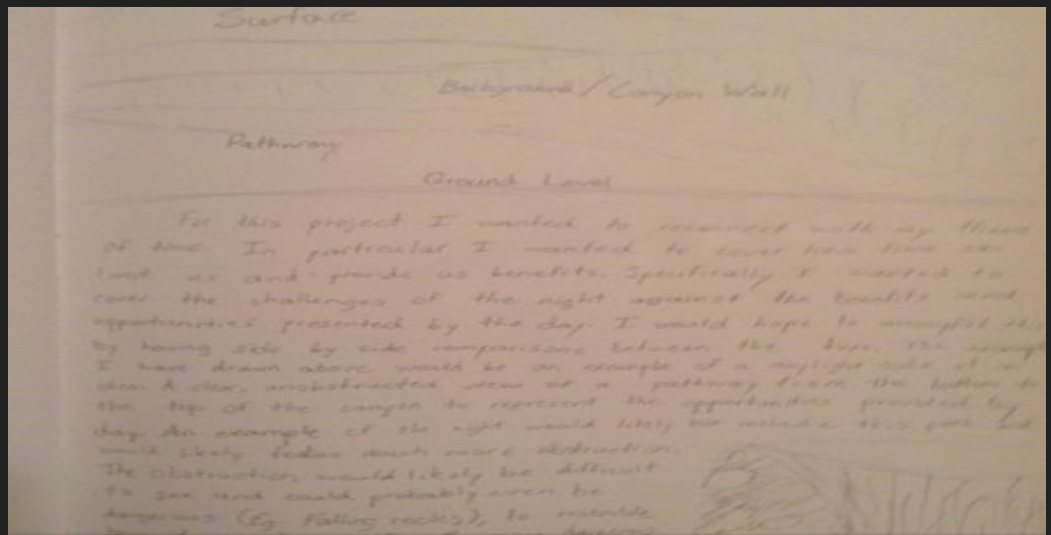 Surface
Background/Canyon Wall
Pathway
Ground Level
For this project I wanted to reconnect with my theme
of time. In particular I wanted to cover how time can
limit us and provide us benefits. Specifically I wanted to
cover the challenges of the night against the benefits and
opportunities presented by the day. I would hope to accomplish this
by having side by side comparisons between the two. The example
I have drawn above would be an example of a daylight side of
idea. A clear, unobstructed view of a pathway from the bottom to
the top of the canyon to represent the opportunities provided by
day. An example of the night would likely not include this path and
would likely feature much more obstruction.
The obstruction would likely be difficult
to see and could probably even be
dangerous (Eg. Falling rocks), to resemble